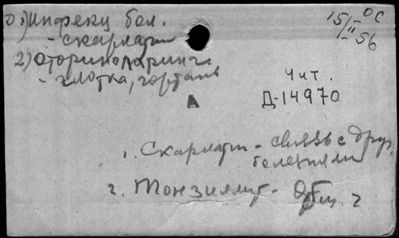 1) Инфекц бол.
- скарлат
15/II 56
2) Оториноларинг
- глотка, гортань
Чит.
Д-14970
А
1. Скарлат - связь с друг.
болезнями
2. Тонзиллит -